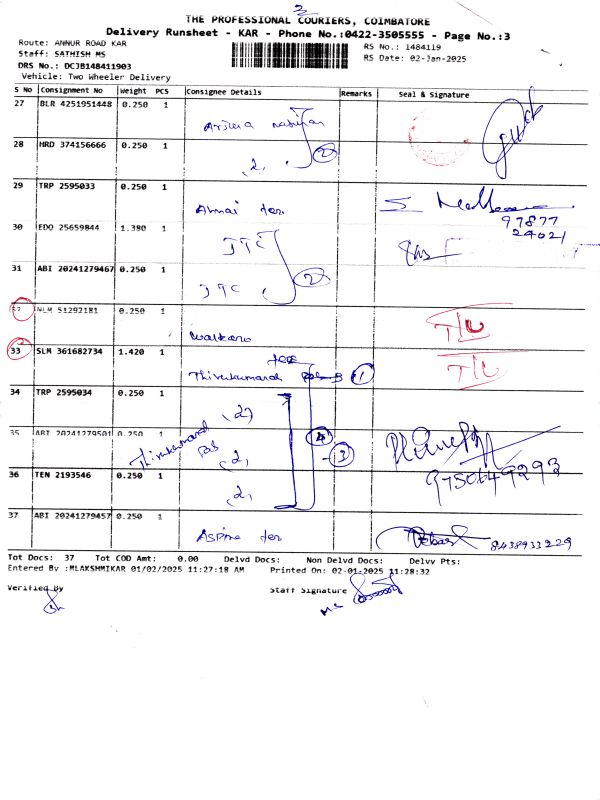 THE PROFESSIONAL COURIERS, COIMBATORE
Delivery Runsheet - KAR - Phone No.:0422-3505555 - Page No.:3
Route: ANNUR ROAD KAR
RS No.: 1484119
Staff: SATHISH MS
RS Date: 02-Jan-2025
DRS No.: DCJB148411903
Vehicle: Two Wheeler Delivery
S No Consignment No Weight PCS Consignee Details Remarks Seal & Signature
27 BLR 4251951448 0.250 1
28 HRD 374156666 0.250 1
(2)
29 TRP 2595033 0.250 1
97877
24021
30 EDO 25659844 1.380 1
JTC
31 ABI 20241279467 0.250 1
JTC
(2)
32 NLM 51292181 0.250 1
T/L
33 SLM 361682734 1.420 1
Thirukumaran (1)
T/L
34 TRP 2595034 0.250 1
(2)
35 ABI 20241279501 0.250 1
Thirukumaran
(2)
(3)
9750649293
36 TEN 2193546 0.250 1
(2)
37 ABI 20241279457 0.250 1
Aspine
8438933229
Tot Docs: 37 Tot COD Amt: 0.00 Delvd Docs: Non Delvd Docs: Delvv Pts:
Entered By :MLAKSHMIKAR 01/02/2025 11:27:18 AM Printed On: 02-01-2025 11:28:32
Verified By
Staff Signature